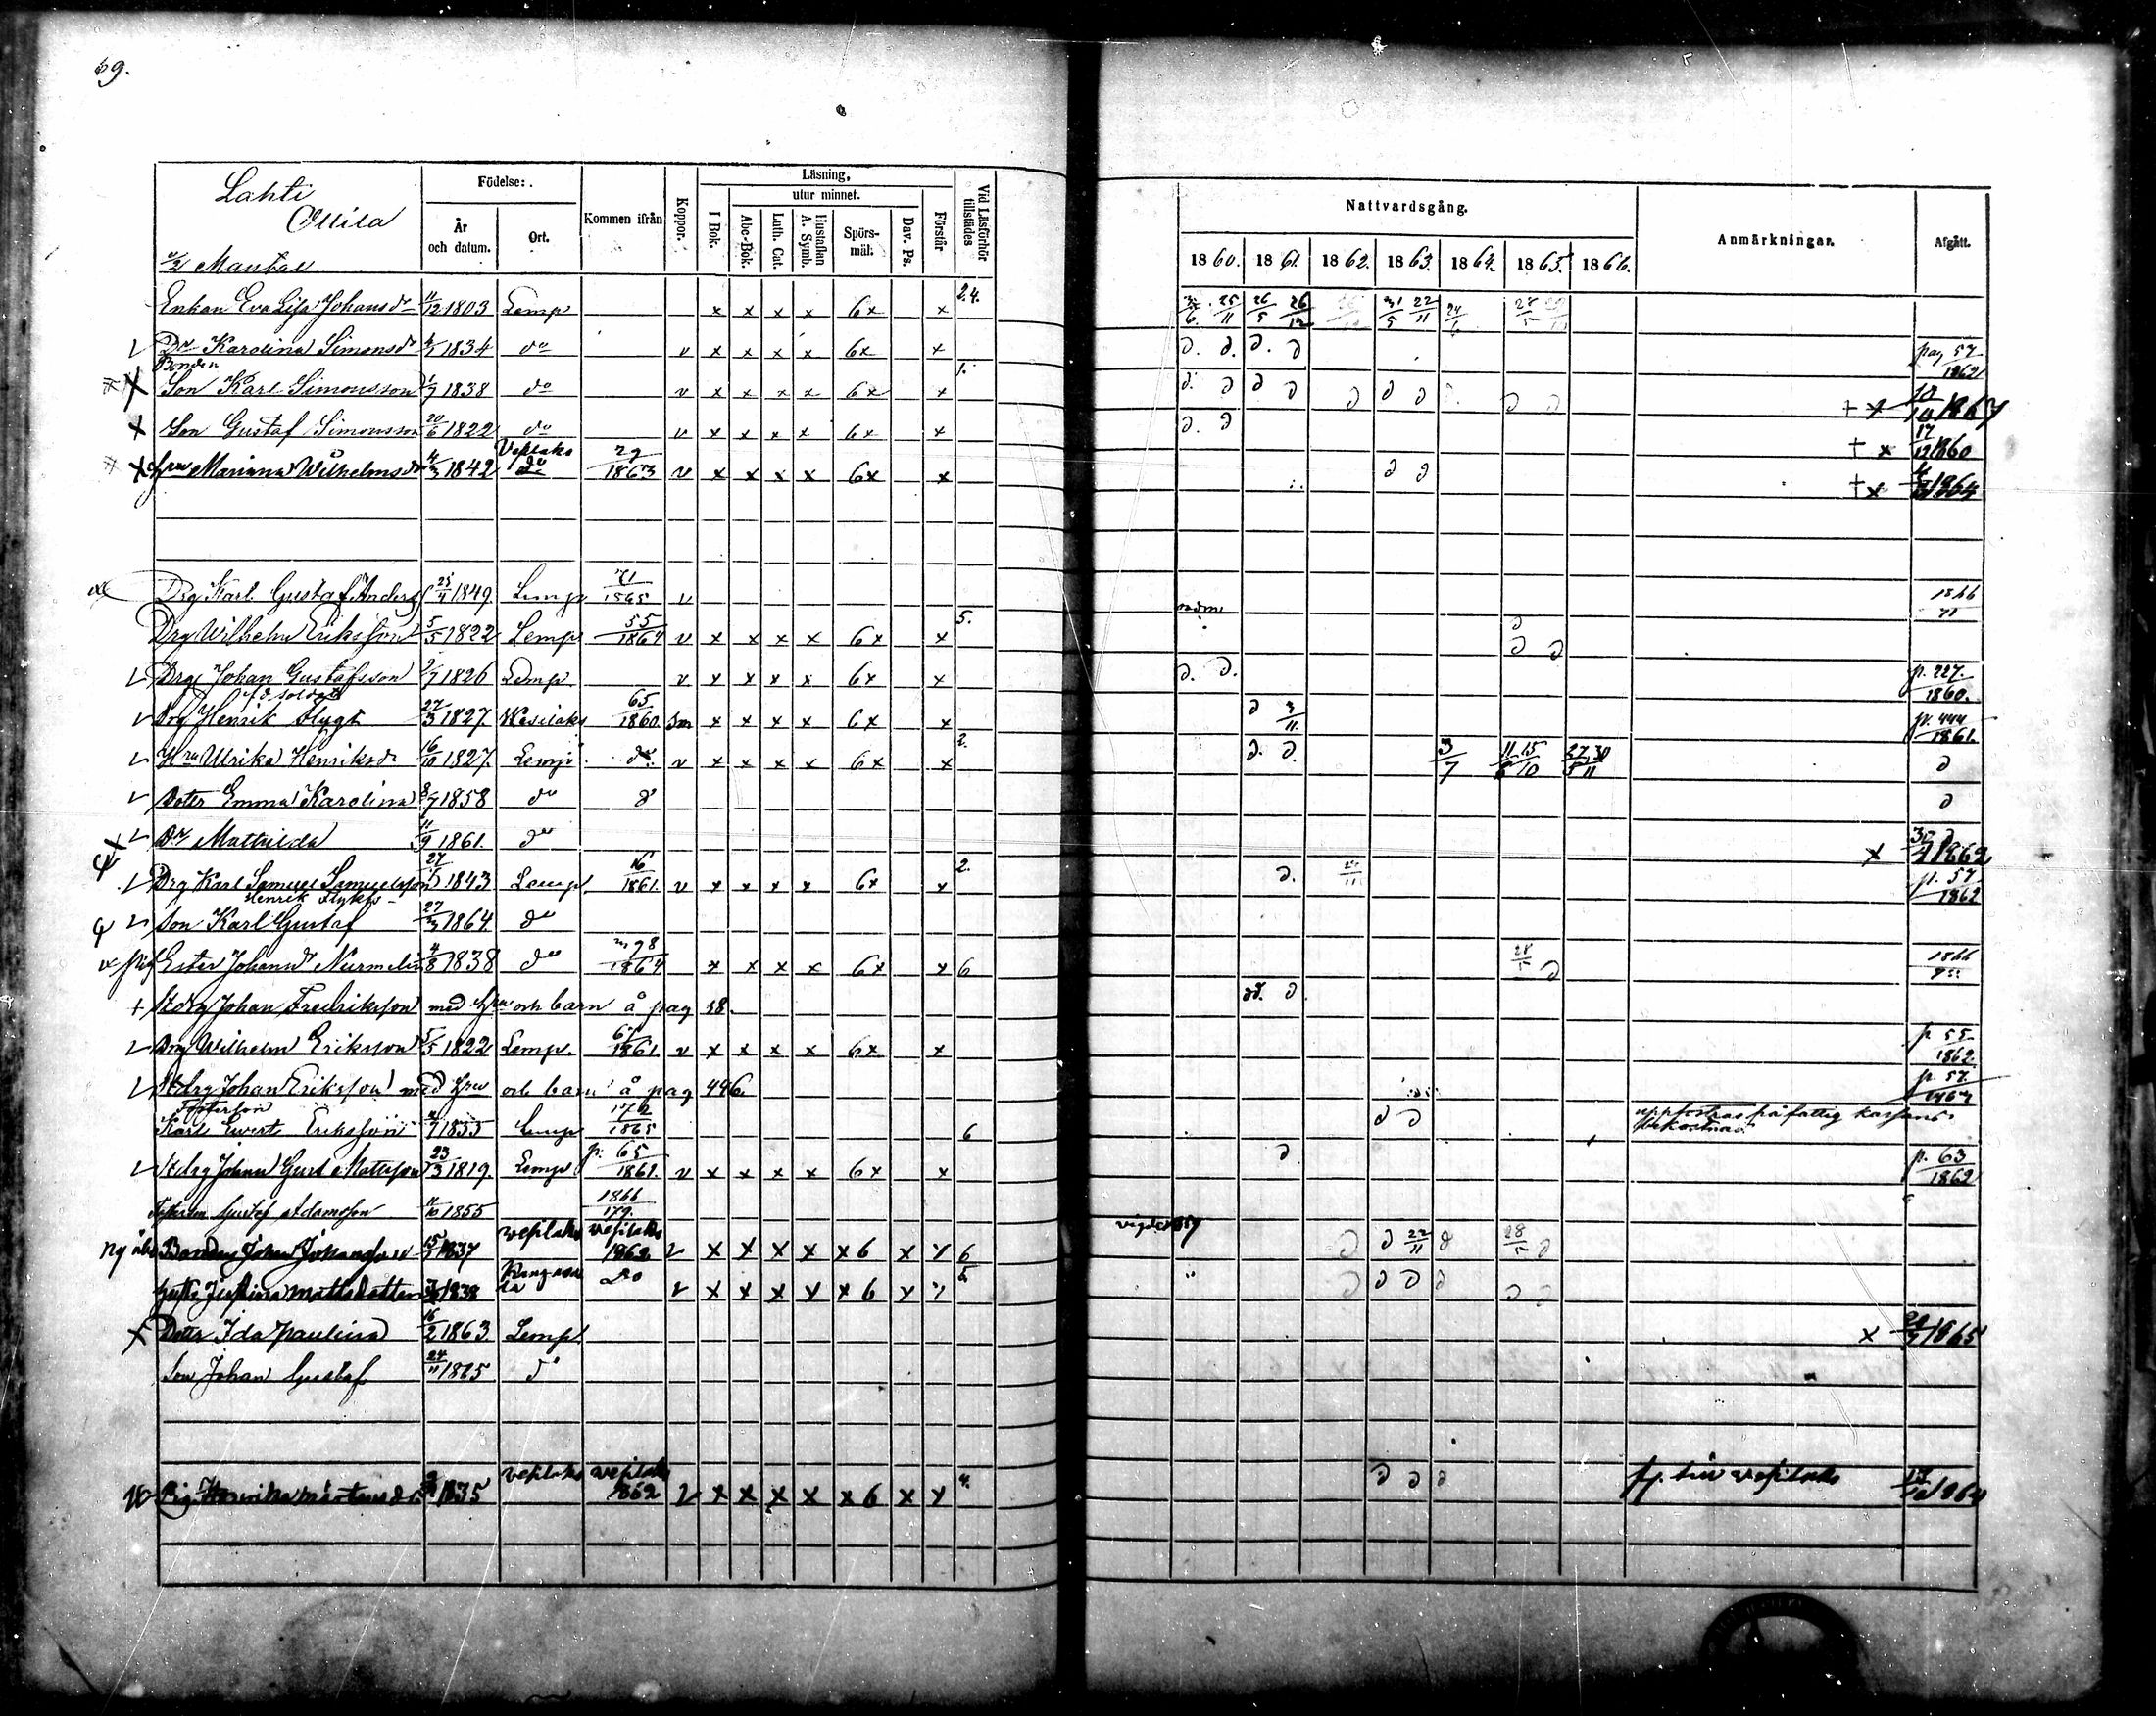 69.
Lahti
Ollila
1/2 Mantal
Födelse:
År och datum.
Ort.
Kommen ifrån
Koppor.
Läsning,
I Bok.
utur minnet.
Abc-Bok.
Luth. Cat.
Hustaflan A. Symb.
Spörs-mål.
Dav. Ps.
Förstår
Vid Läsförhör tillstädes
Nattvardsgång.
1860. 1861. 1862. 1863. 1864. 1865. 1866.
Anmärkningar.
Afgått.
Enkan Eva Lisa Johansdr 11/12 1803 Lemp x x x x 6x x 2.4.
Dr Karolina Simonsdr 1834 do v x x x x 6x x pag 57 1862
Bonden
Son Karl Simonsson 1/7 1838 do v x x x x 6x x 1. + x 10/10 1867
Son Gustaf Simonsson 20/6 1822 do v x x x x 6x x + x 17/12 1860
Hru Mariana Wilhelmsdr 4/3 1842 Vesilaks do 29/1863 v x x x x 6x x + x 1864
Drg Karl Gustaf Anders 25/4 1849. Lemp 71/1865 v 1866/71
Drg Wilhelm Eriksson 5/5 1822 Lemp 55/1864 v x x x x 6x x 5.
Drg Johan Gustafsson 2/7 1826 Lemp v x x x x 6x x p. 227. 1860.
f.d. soldat
Drg Henrik Flygt 27/3 1827. Wesilaks 65/1860. x x x x 6x x p. 444 1861.
Hru Ulrika Henriksdr 16/10 1827. Lemp. do v x x x x 6x x 2. 3/7 11.15/6 10 27.30/5 11
Doter Emma Karolina 8/7 1858 do
Dr Mathilda 11/9 1861. do x 1862
Drg Karl Samuel Samuelsson 27/1 1843 Lemp 16/1861. v x x x x 6x x 2. p. 57 1862
Henrik Flykts
Son Karl Gustaf 27/3 1864 do
Pig Ester Johansdr Nurmelin 4/8 1838 do 98/1864 x x x x 6x x 6 28/5 1866
Stdrg Johan Fredriksson med Hru och barn å pag 58.
Drg Wilhelm Eriksson 5/5 1822 Lemp. 1861. v x x x x 6x x p 55 1862
Stdrg Johan Eriksson med Hru och barn å pag 446. p. 57
Fosterson
Karl Evert Eriksson 1855 Lemp 172/1865 6 uppfostras på fattig kassans bekostnad
Stdrg Johan Gust. Mattsson 23/3 1819. Lemp p. 65/1861. v x x x x 6x x p. 63 1862
Gustaf Adamsson 1855 1866/179.
Bonden Johan Johansson 15/5 1837 Vesilaks Vesilaks 1862 v x x x x x 6 x x 6 vigde 22/11 28/5
Hustr Justina Mattsdotter 1838 Kangasala Do v x x x x x 6 x x 5
Doter Ida Paulina 16/2 1863 Lemp x 1865
Son Johan Gustaf 24/11 1865 do
Pig Henrika Mårtensdr 1835 Vesilaks Vesilaks 1862 v x x x x x 6 x x 4. Vesilaks 1864